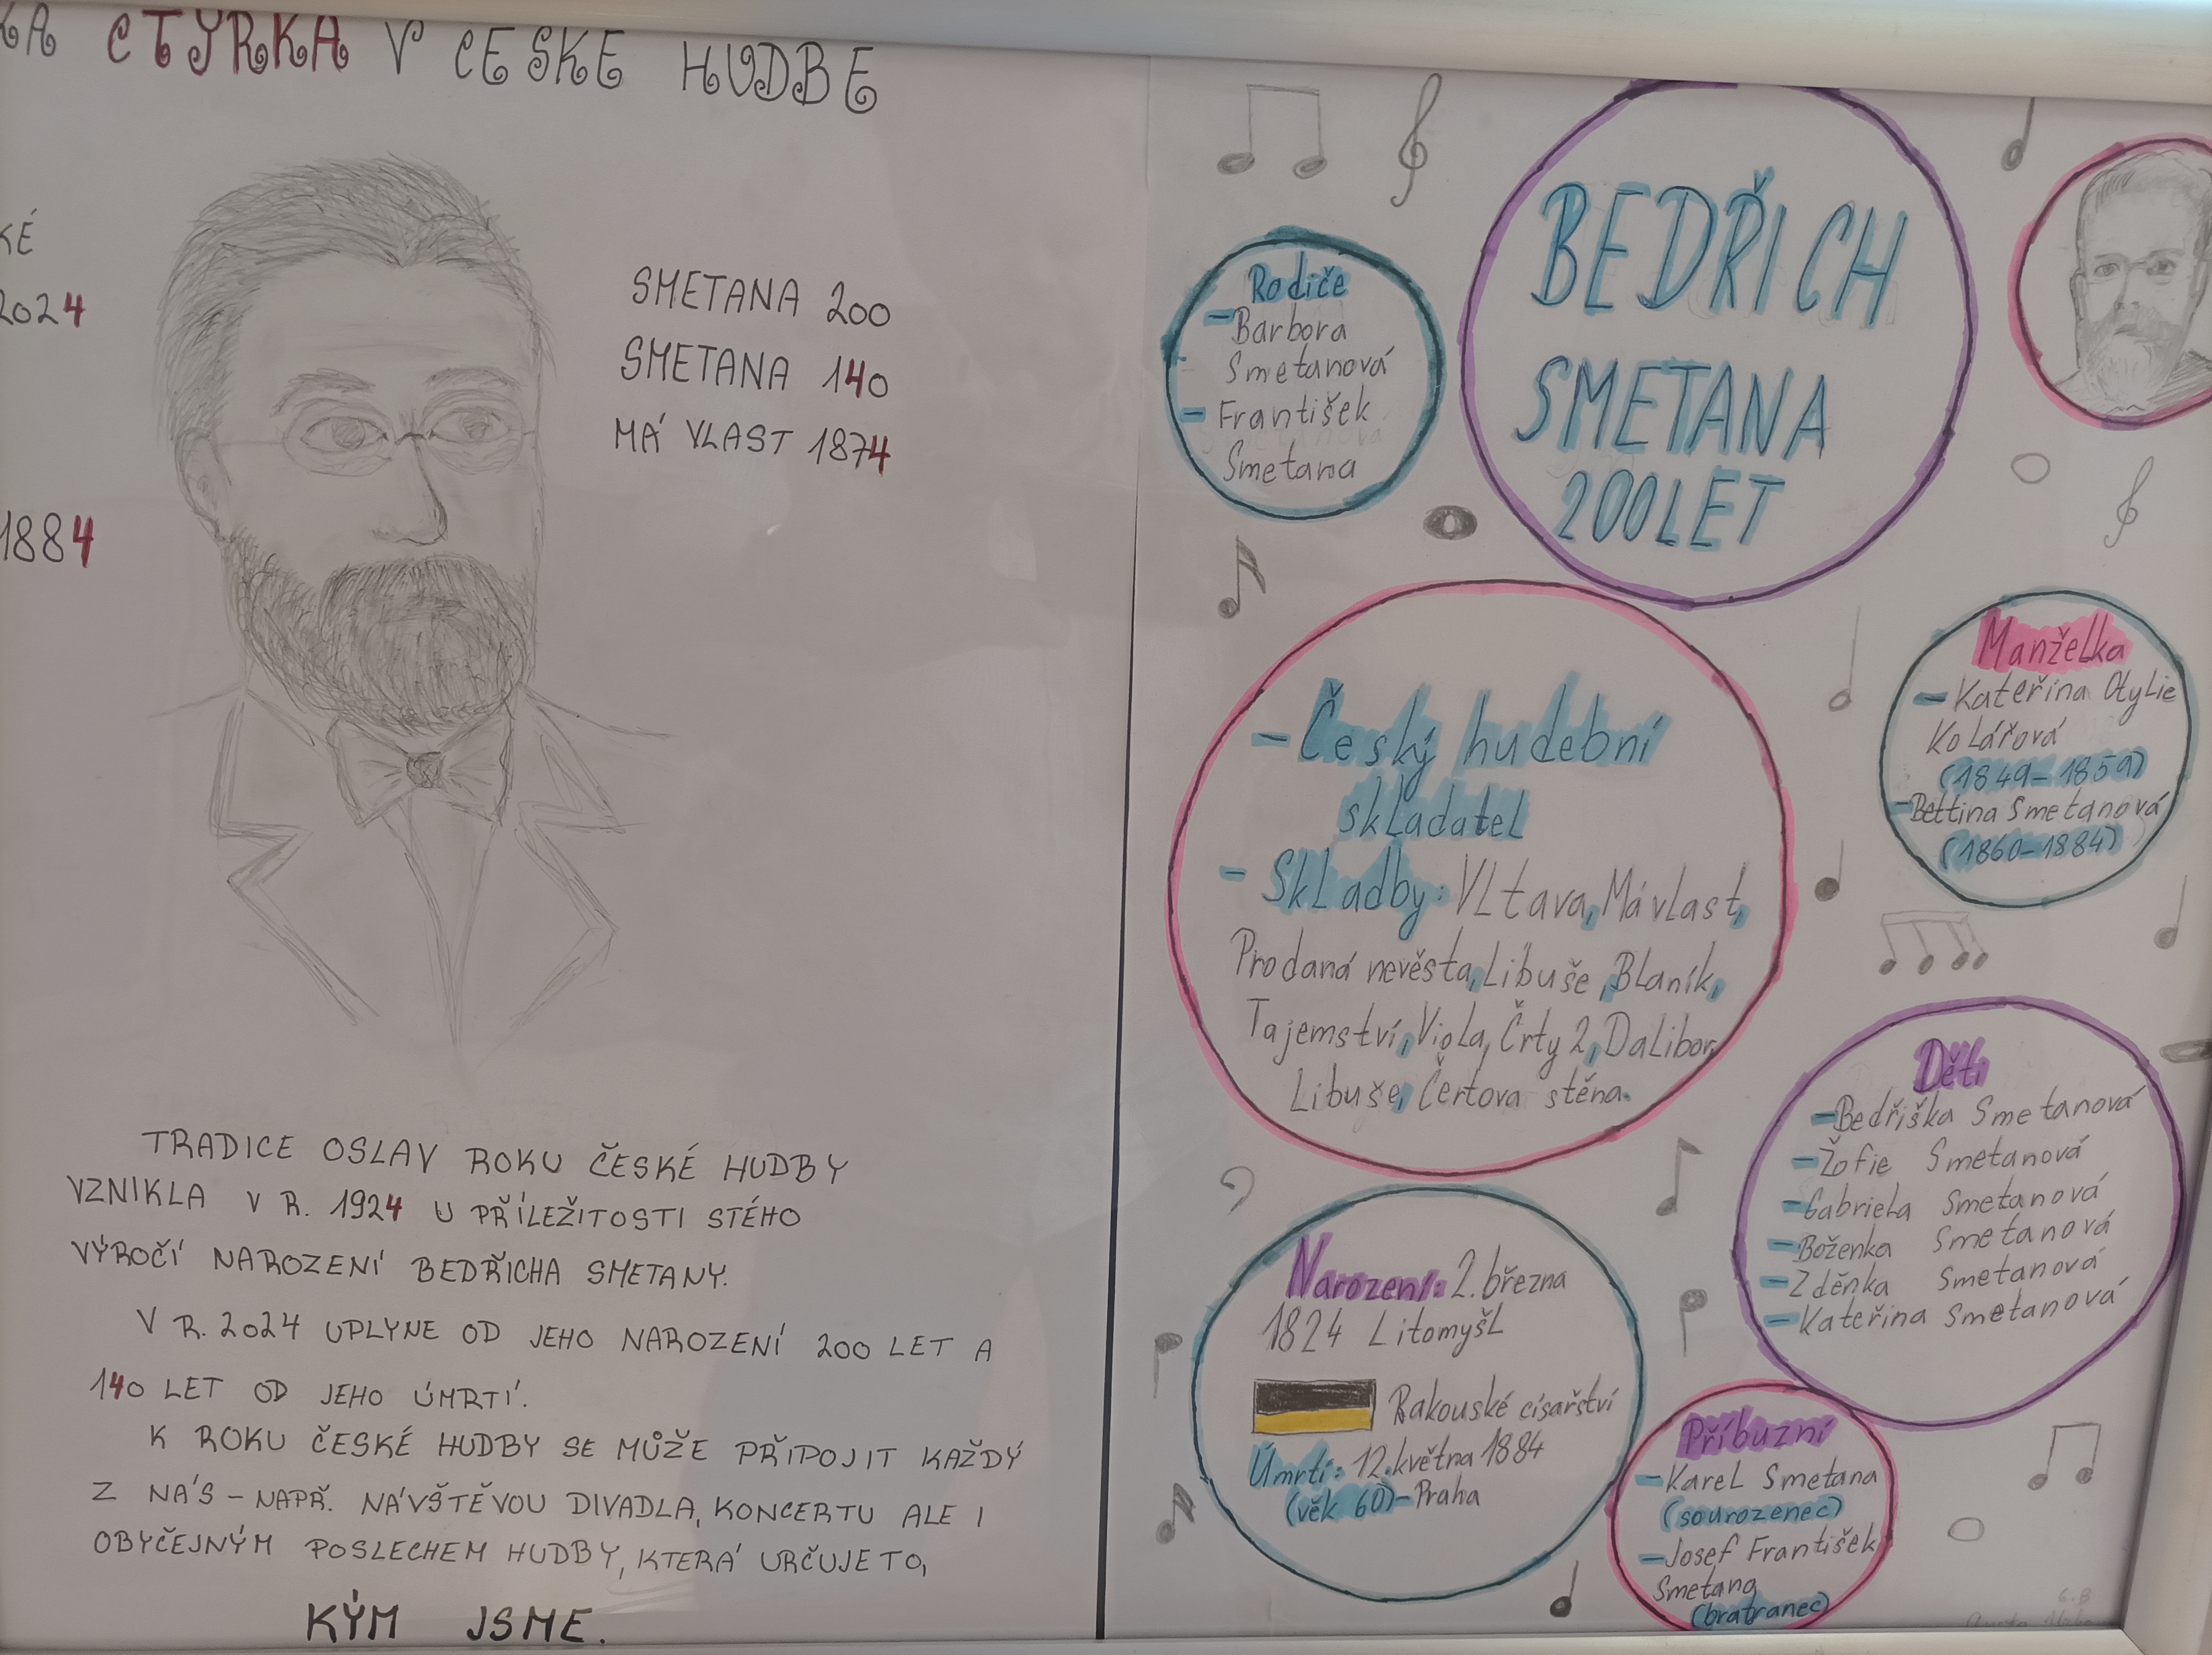 ČTYŘKA V ČESKÉ HUDBĚ
2024
1884
SMETANA 200
SMETANA 140
MÁ VLAST 1874
TRADICE OSLAV ROKU ČESKÉ HUDBY
VZNIKLA V R. 1924 U PŘÍLEŽITOSTI STÉHO
VÝROČÍ NAROZENÍ BEDŘICHA SMETANY.
V R. 2024 UPLYNE OD JEHO NAROZENÍ 200 LET A
140 LET OD JEHO ÚMRTÍ.
K ROKU ČESKÉ HUDBY SE MŮŽE PŘIPOJIT KAŽDÝ
Z NÁS – NAPŘ. NÁVŠTĚVOU DIVADLA, KONCERTU ALE I
OBYČEJNÝM POSLECHEM HUDBY, KTERÁ URČUJE TO,
KÝM JSME.
BEDŘICH
SMETANA
200 LET
Rodiče
– Barbora
Smetanová
– František
Smetana
– Český hudební
skladatel
– Skladby: Vltava, Má vlast,
Prodaná nevěsta, Libuše, Blaník,
Tajemství, Viola, Črty 2, Dalibor,
Libuše, Čertova stěna.
Manželka
– Kateřina Otylie
Kolářová
(1849–1859)
– Bettina Smetanová
(1860–1884)
Děti
– Bedřiška Smetanová
– Žofie Smetanová
– Gabriela Smetanová
– Boženka Smetanová
– Zděnka Smetanová
– Kateřina Smetanová
Narození: 2. března
1824 Litomyšl
Rakouské císařství
Úmrtí: 12. května 1884
(věk 60) – Praha
Příbuzní
– Karel Smetana
(sourozenec)
– Josef František
Smetana
(bratranec)
6.B